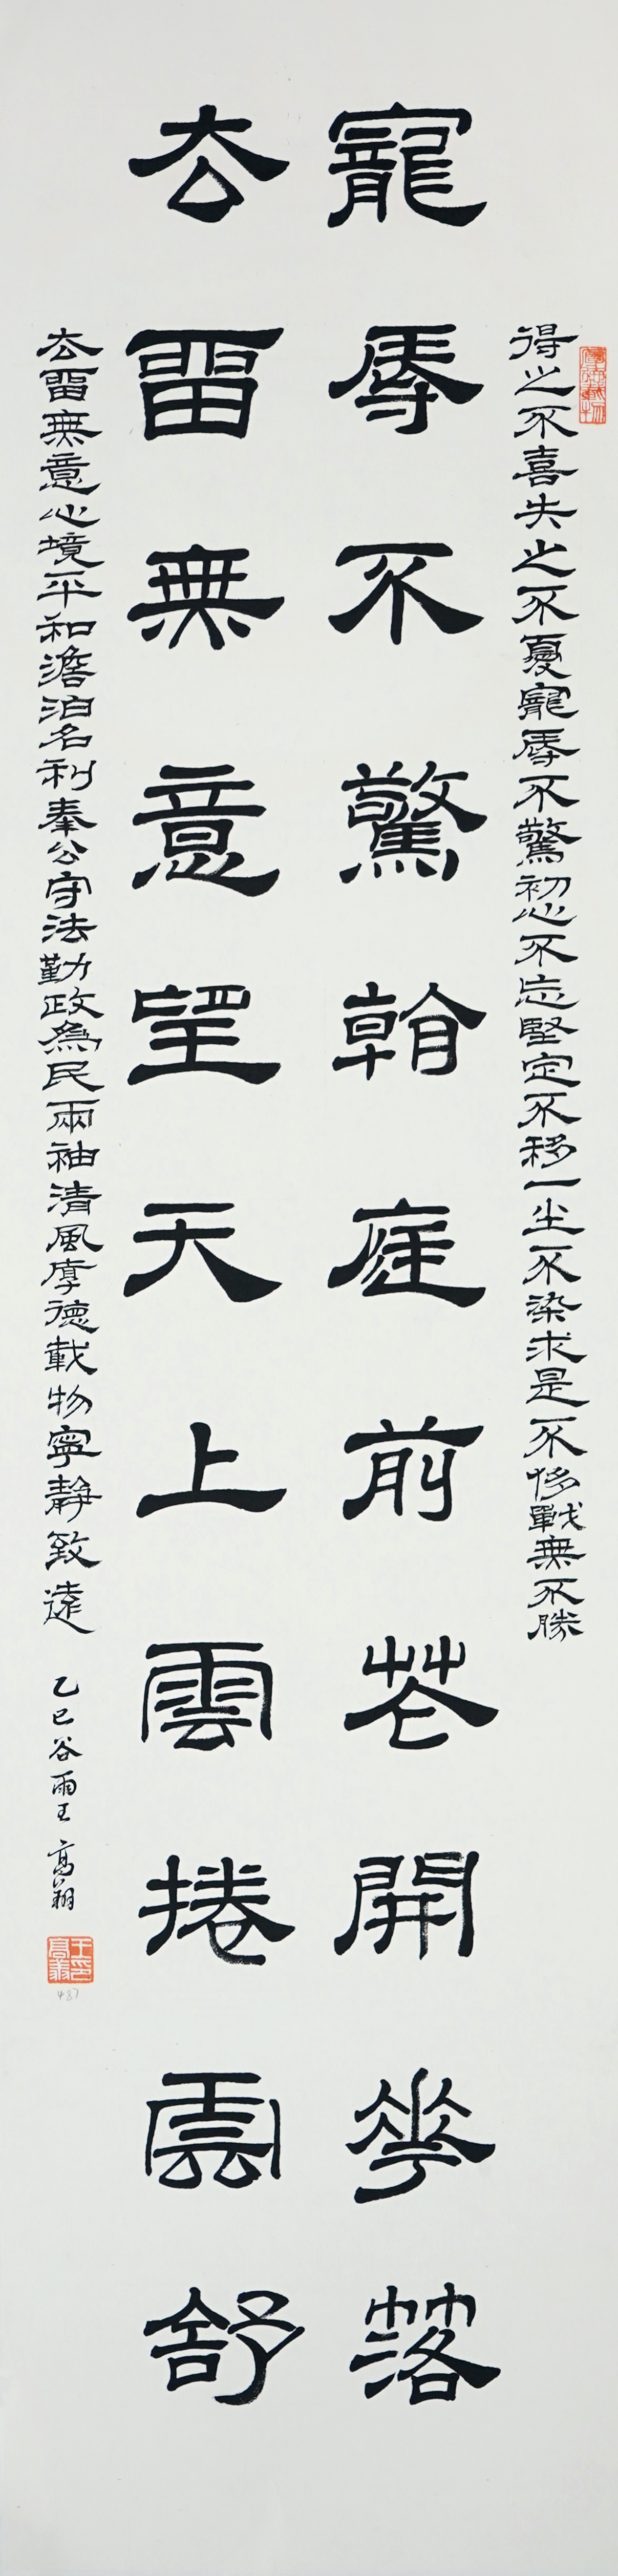 得之不喜失之不憂寵辱不驚初心不忘堅定不移一尘不染求是不侈戰無不勝
寵辱不驚看庭前花開華落
去畱無意望天上雲捲雲舒
去畱無意心境平和澹泊名利奉公守法勤政為民兩袖清風厚德載物寧靜致遠
乙巳谷雨王高翔
王印高翔
487